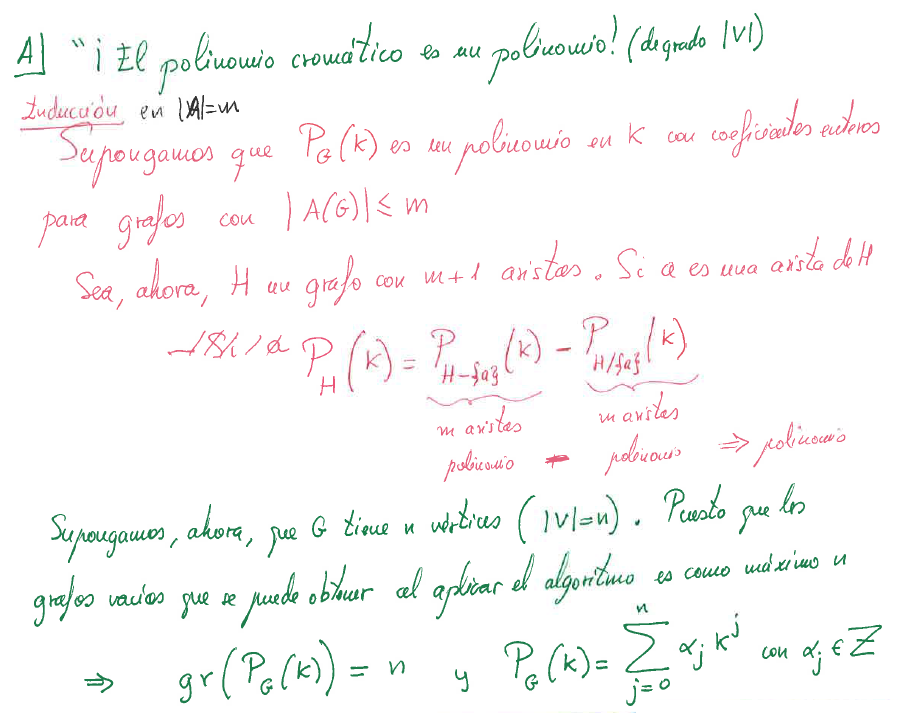 A] "¡El polinomio cromático es un polinomio! (de grado |V|)
Inducción en |A|=m
Supongamos que P_G(k) es un polinomio en k con coeficientes enteros
para grafos con |A(G)| ≤ m
Sea, ahora, H un grafo con m+1 aristas. Si a es una arista de H
P_H(k) = P_{H-{a}}(k) - P_{H/{a}}(k)
m aristas m aristas
polinomio - polinomio ⇒ polinomio
Supongamos, ahora, que G tiene n vértices (|V|=n). Puesto que los
grafos vacíos que se puede obtener al aplicar el algoritmo es como máximo n
⇒ gr(P_G(k)) = n y P_G(k) = \sum_{j=0}^{n} α_j k^j con α_j ∈ ℤ